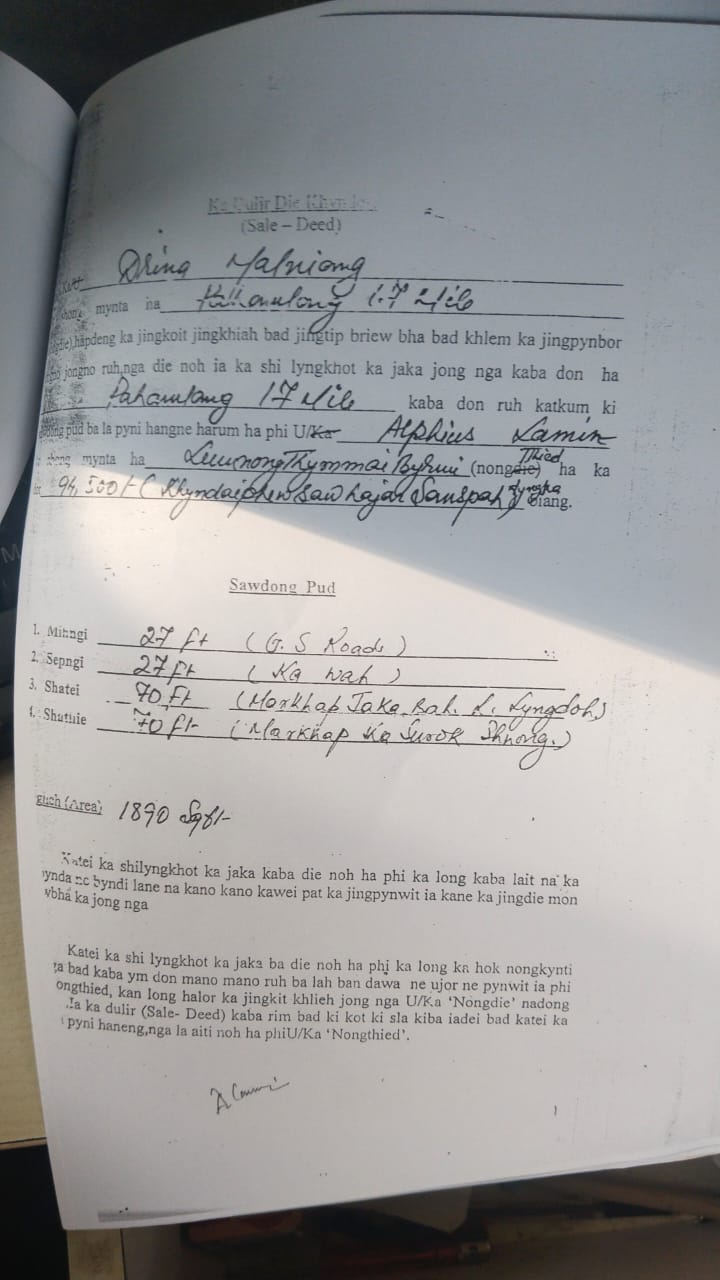 Ka Dulir Die Khyndew
(Sale – Deed)
Drina Malniang
shong mynta ha Pahamulong 17 Mile
hapdeng ka jingkoit jingkhiah bad jingtip briew bha bad khlem ka jingpynbor
jongno ruh,nga die noh ia ka shi lyngkhot ka jaka jong nga kaba don ha
Pahamlang 17 Mile kaba don ruh katkum ki
pud ba la pyni hangne harum ha phi U/Ka Alphius Lamin
shong mynta ha Thymmai Byrni (nongdie) Thied ha ka
94,500/- (Khyndaiphew saw hajar Sanspah) tyngka biang.
Sawdong Pud
1. Mihngi 27 ft (G. S Road)
2. Sepngi 27 ft (Ka wah)
3. Shatei 70 ft (Markhap Jaka Bah. L. Lyngdoh)
4. Shathie 70 ft (Markhap Ka Surok Shnong.)
(Area) 1890 Sqft
Katei ka shilyngkhot ka jaka kaba die noh ha phi ka long kaba lait na ka
byndi lane na kano kano kawei pat ka jingpynwit ia kane ka jingdie mon
ka jong nga
Katei ka shi lyngkhot ka jaka ba die noh ha phi ka long ka hok nongkynti
bad kaba ym don mano mano ruh ba lah ban dawa ne ujor ne pynwit ia phi
ongthied, kan long halor ka jingkit khlieh jong nga U/Ka ‘Nongdie’ nadong
Ia ka dulir (Sale- Deed) kaba rim bad ki kot ki sla kiba iadei bad katei ka
pyni haneng,nga la aiti noh ha phiU/Ka ‘Nongthied’.
1